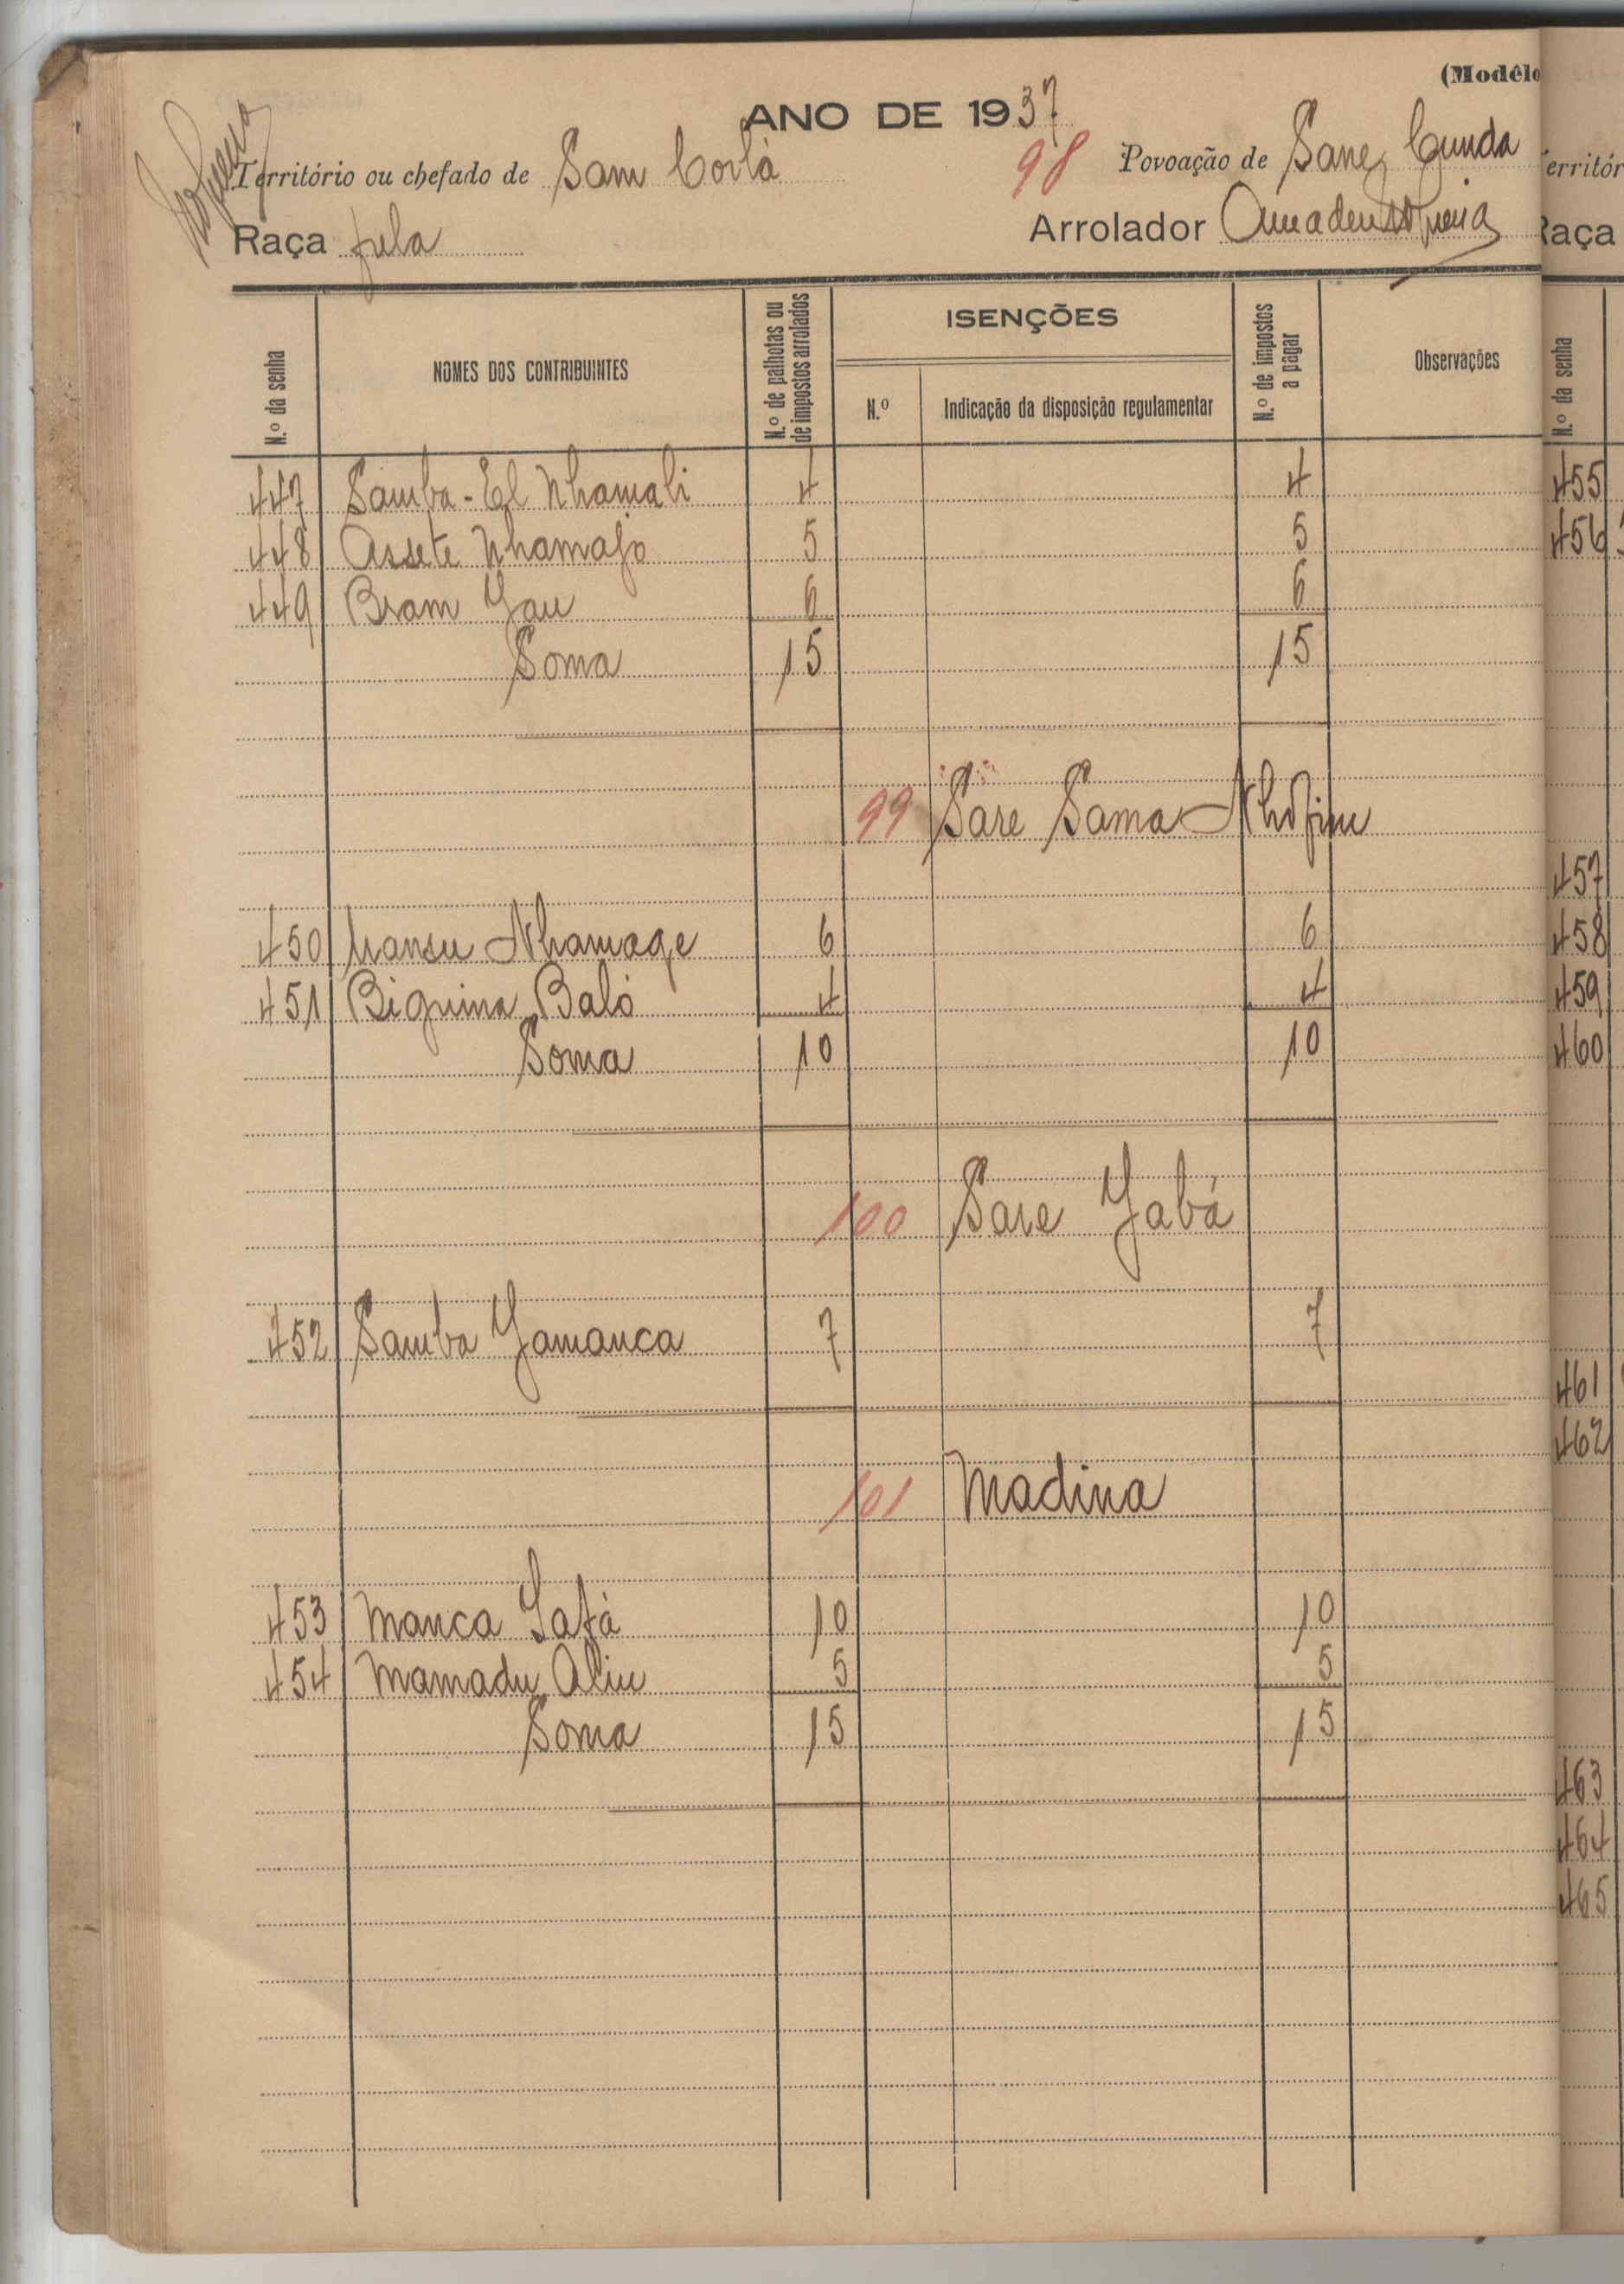 (Modêlo
ANO DE 1937
Território ou chefado de Sam Corlà 98 Povoação de Sane Cunda
Raça fula Arrolador Amadeu Nogueira
N.º da senha NOMES DOS CONTRIBUINTES N.º de palhotas ou de impostos arrolados ISENÇÕES N.º de impostos a pagar Observações
N.º Indicação da disposição regulamentar
447 Samba-El Nhamali 4 4
448 Assete Nhamajo 5 5
449 Bram Jau 6 6
Soma 15 15
99 Sare Sama
450 Mansu Nhamage 6 6
451 Biquina Baló 4 4
Soma 10 10
100 Sare Jabá
452 Samba Jamanca 7 7
101 Madina
453 Manca Satà 10 10
454 Mamadu Aliu 5 5
Soma 15 15
erritór
Raça
N.º da senha
455
456
457
458
459
460
461
462
463
464
465